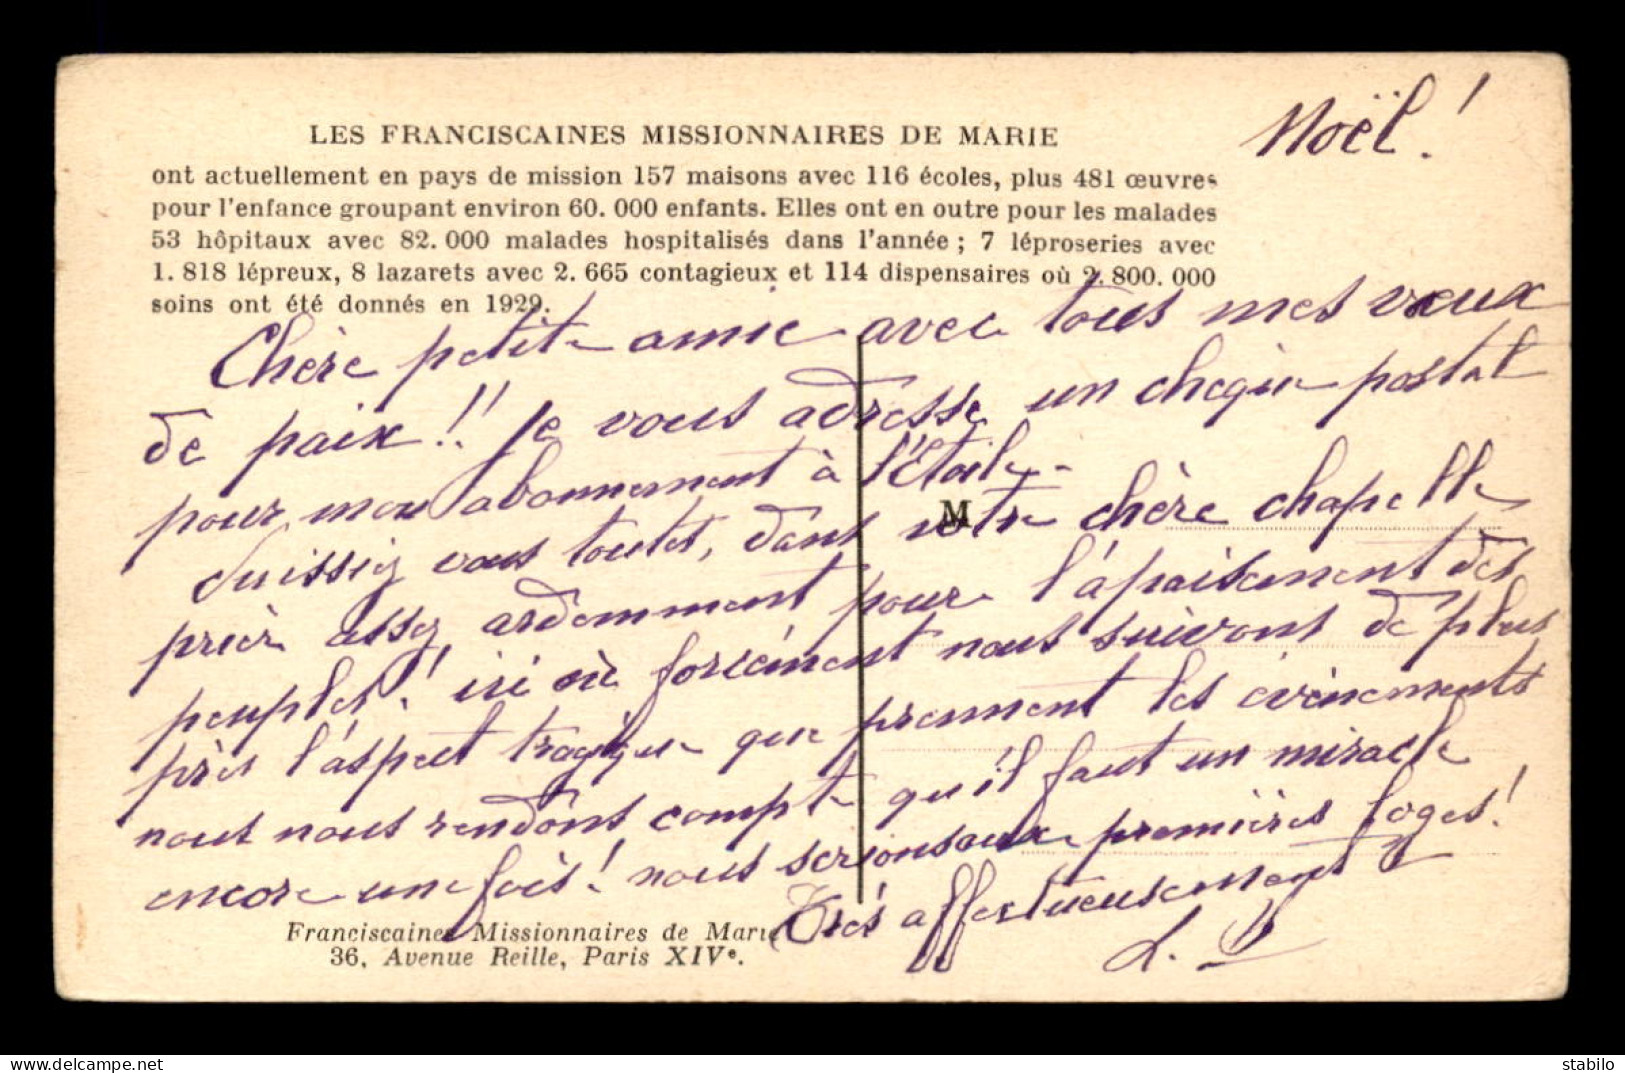 Noël !
LES FRANCISCAINES MISSIONNAIRES DE MARIE
ont actuellement en pays de mission 157 maisons avec 116 écoles, plus 481 œuvres
pour l'enfance groupant environ 60. 000 enfants. Elles ont en outre pour les malades
53 hôpitaux avec 82. 000 malades hospitalisés dans l'année ; 7 léproseries avec
1. 818 lépreux, 8 lazarets avec 2. 665 contagieux et 114 dispensaires où 2. 800. 000
soins ont été donnés en 1929.
Chère petite amie avec tous mes vœux
de paix !! Je vous adresse un chèque postal
pour mon abonnement à l'Étoile.
Puissiez vous toutes, dans votre chère chapelle
prier assez ardemment pour l'apaisement des
peuples ! ici où forcément nous suivons de plus
près l'aspect tragique que prennent les évènements
nous nous rendons compte qu'il faut un miracle
encore une fois ! nous serions aux premières loges !
Très affectueusement
L. P
M
Franciscaines Missionnaires de Marie
36, Avenue Reille, Paris XIVe.
stabilo